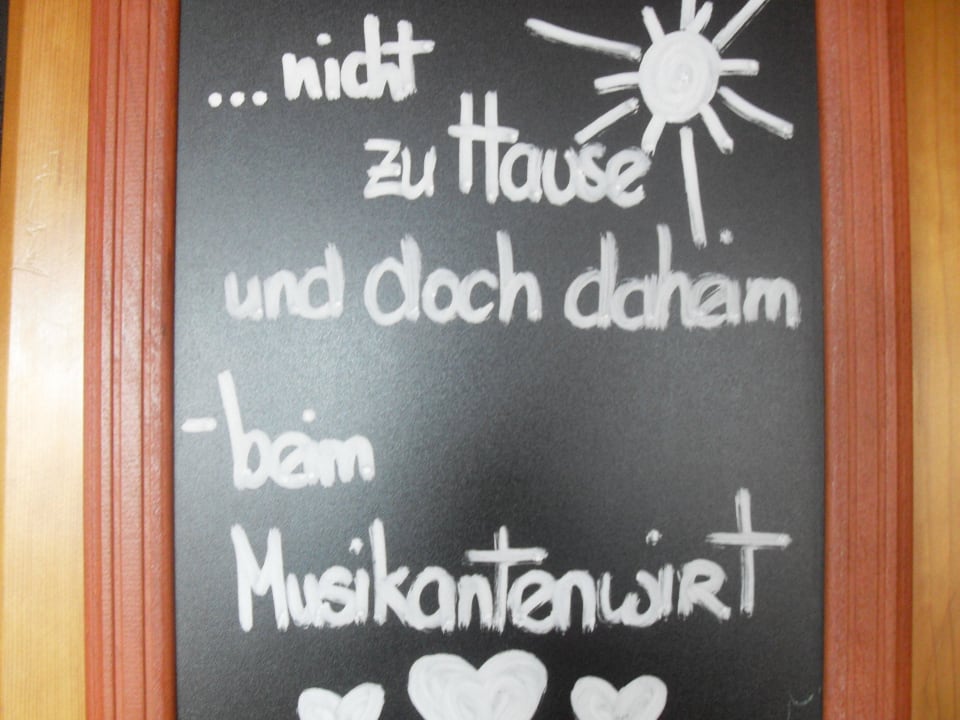 ...nicht
zu Hause
und doch daheim
-beim
Musikantenwirt